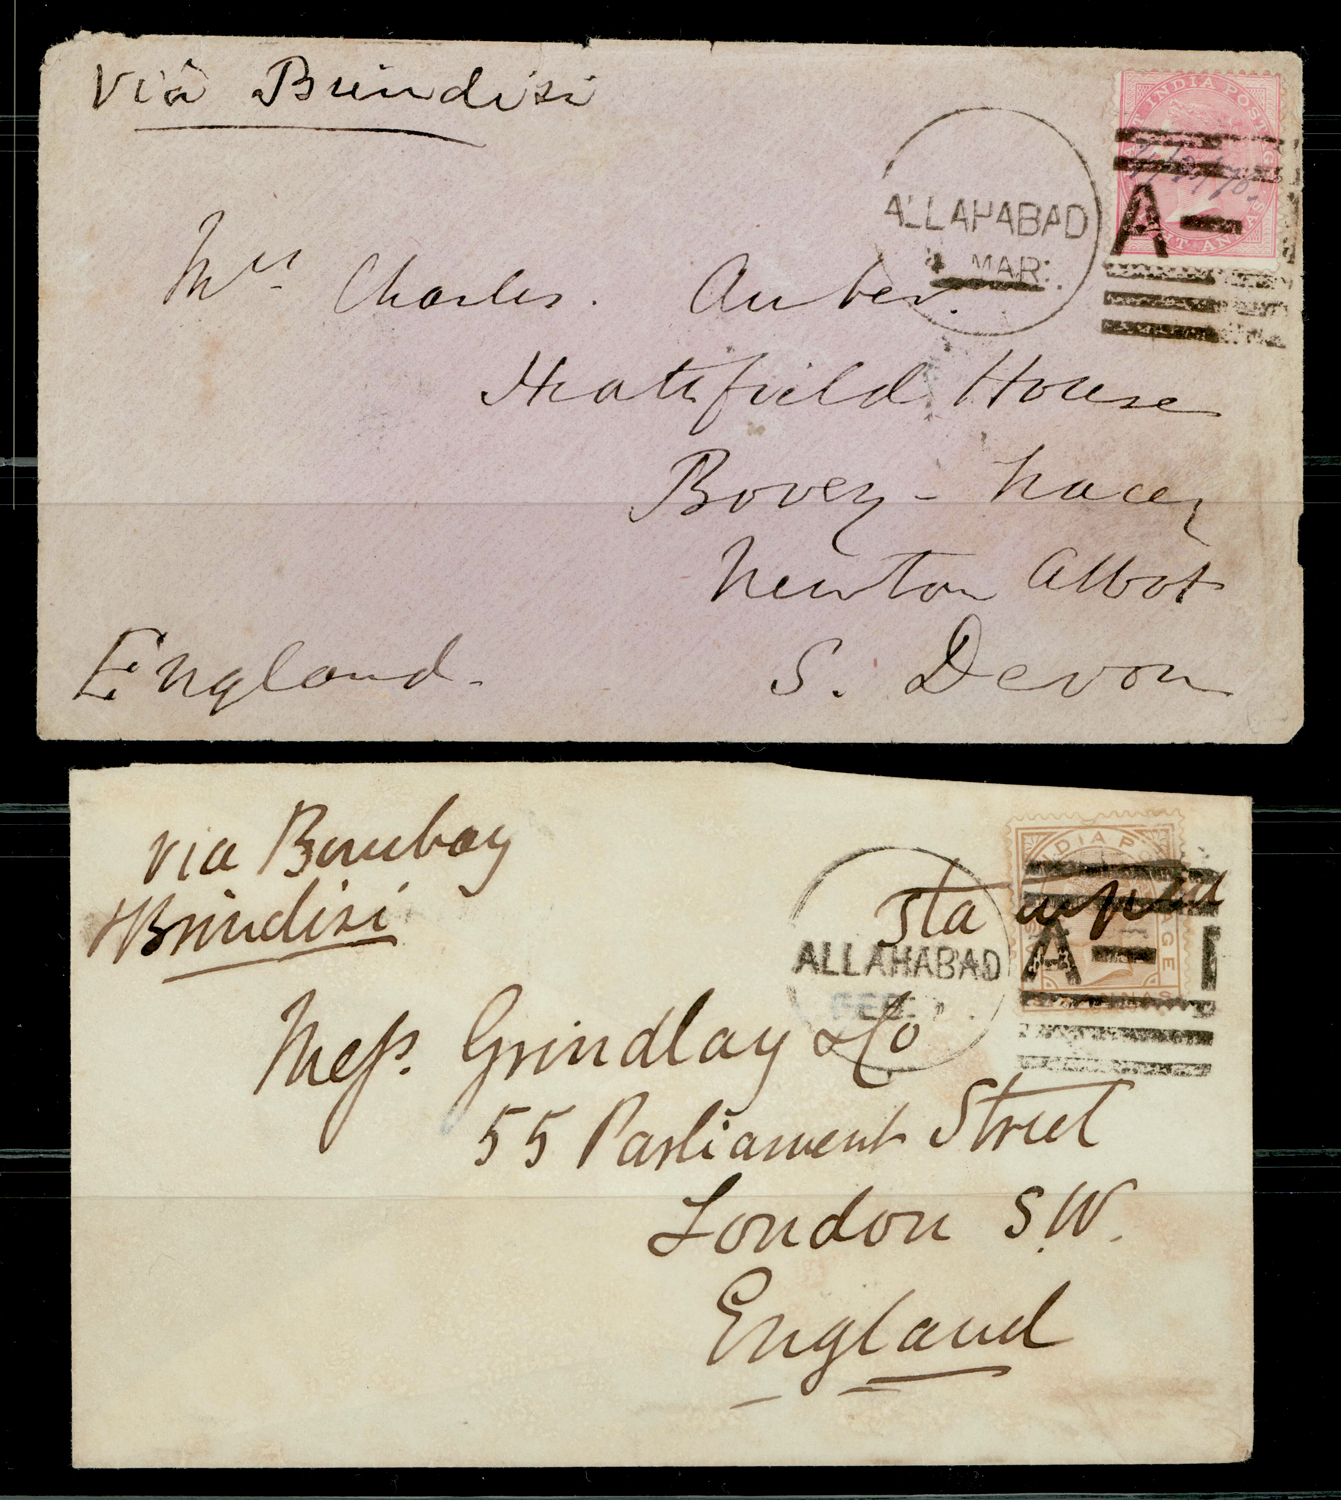 Via Brindisi
EAST INDIA POSTAGE
EIGHT ANNAS
ALLAHABAD
MAR
A-
Mrs Charles. Auber.
Heathfield House
Bovey - Tracey
Newton Abbot
S. Devon
England.
via Bombay
& Brindisi
INDIA POSTAGE
ANNAS
stamped
ALLAHABAD
FEB
A-
Messrs. Grindlay & Co
55 Parliament Street
London S.W.
England